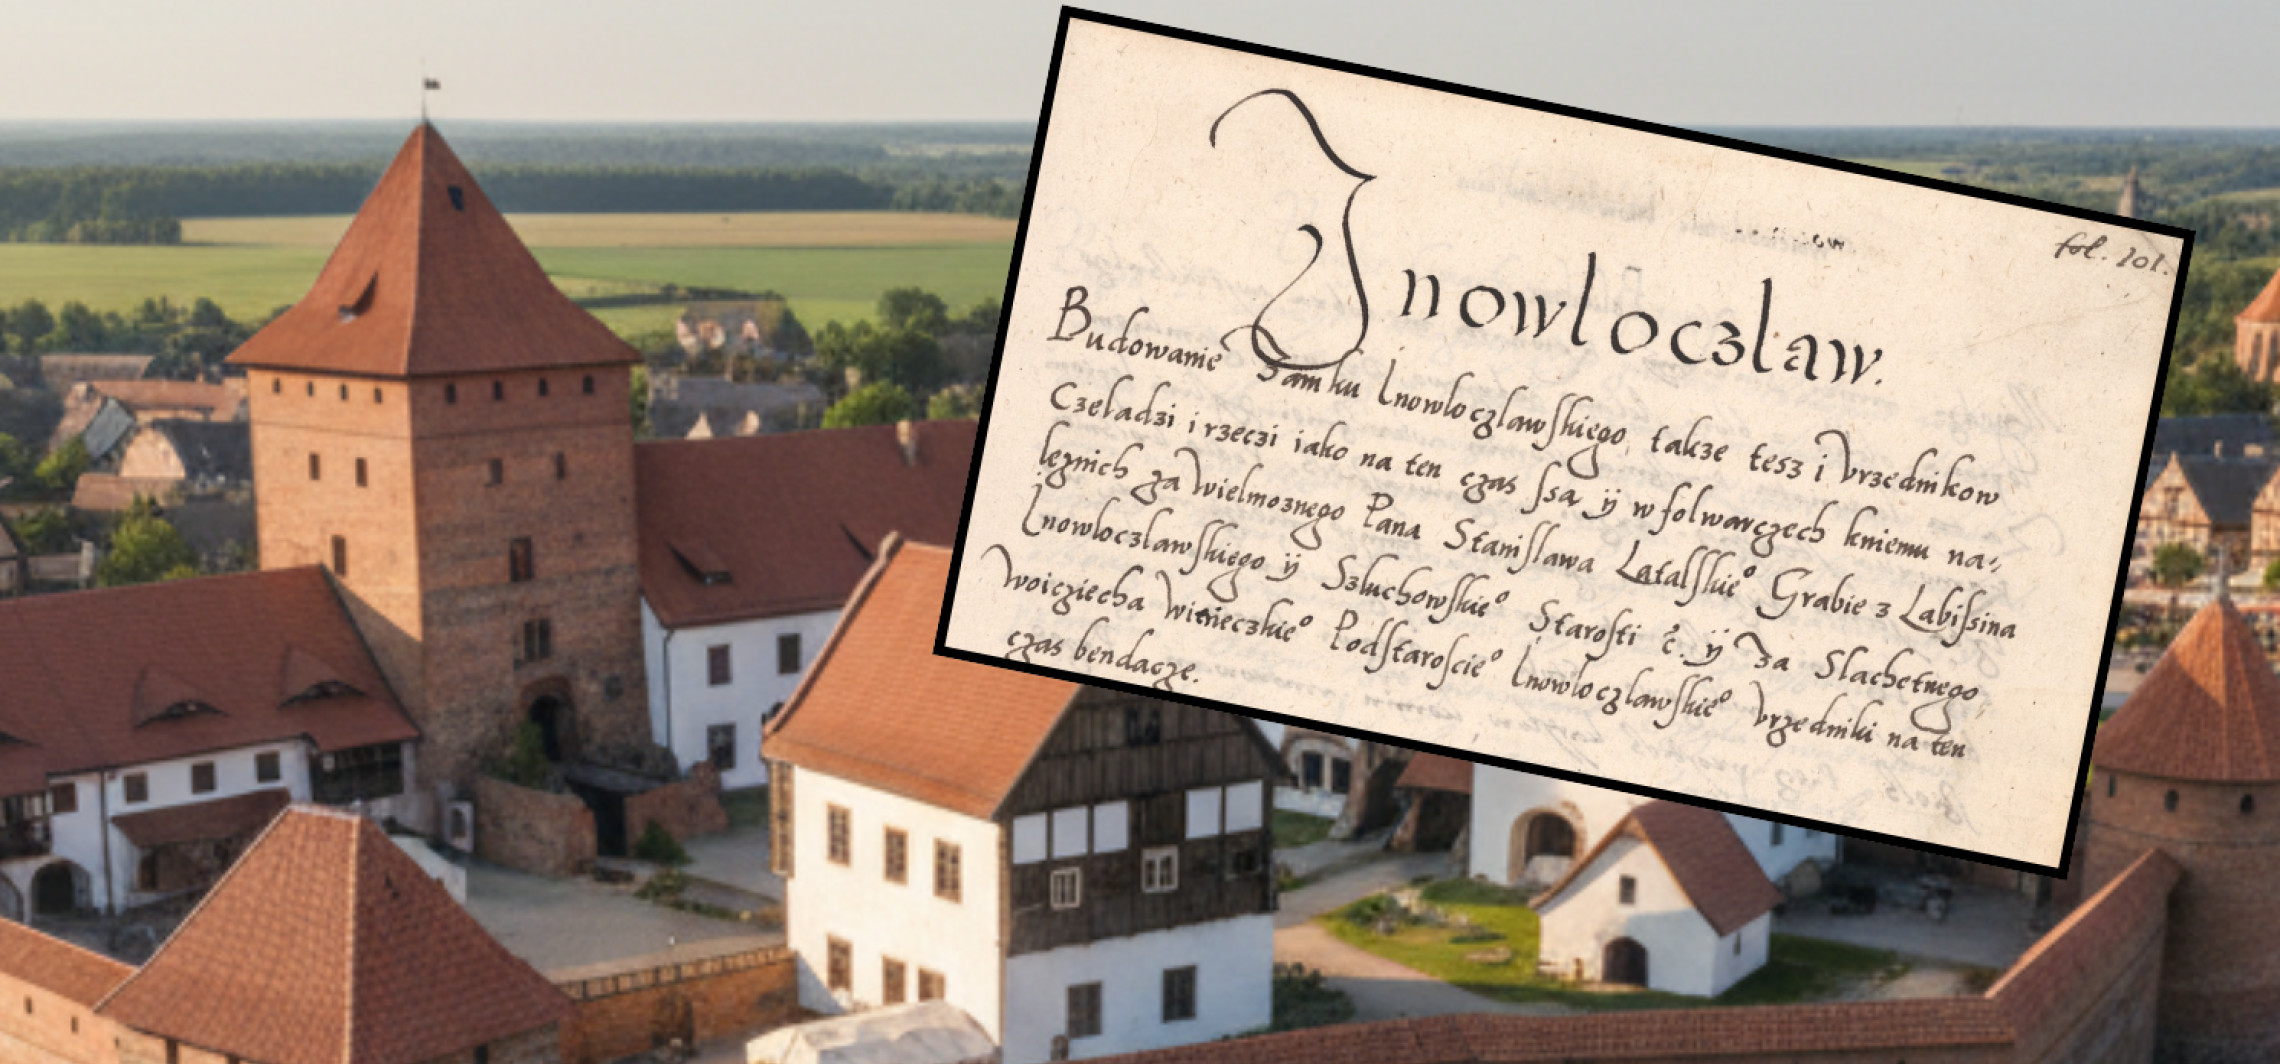 fol. 101.
Jnowloczlaw.
Budowanie Zamku Jnowloczlawskiego, takze tesz i Vrzednikow
Czeladzi i rzeczi iako na ten czas ssą ÿ w folwarczech kniemu na-
leznich za Wielmoznego Pana Stanislawa Latalskieº Grabie z Labissina
Jnowloczlawskiego ÿ Szluchowskieº Starosti ÿ za Slachetnego
Woicziecha Podstaroscieº Jnowloczlawskieº Vrzedniki na ten
czas bendacze.